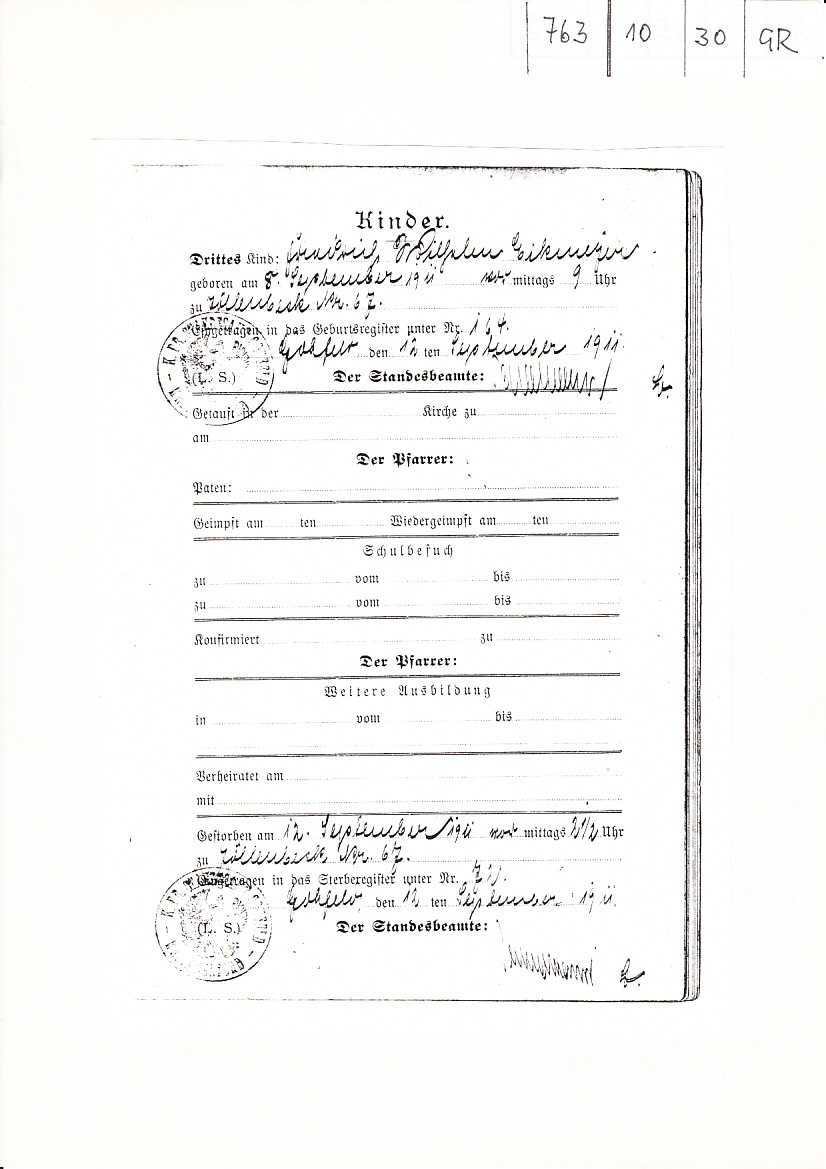 763 10 30 GR
Kinder.
Drittes Kind: Friedrich Wilhelm Eikmeyer
geboren am 8. September 1911 vor mittags 9 Uhr
zu Züllenbeck Nr. 67.
Eingetragen in das Geburtsregister unter Nr. 164.
Gohfeld, den 12 ten September 1911.
(L. S.) Der Standesbeamte:
Getauft in der Kirche zu
am
Der Pfarrer:
Paten:
Geimpft am ten Wiedergeimpft am ten
Schulbesuch
zu vom bis
zu vom bis
Konfirmiert zu
Der Pfarrer:
Weitere Ausbildung
in vom bis
Verheiratet am
mit
Gestorben am 12. September 1911 vor mittags 2 1/2 Uhr
zu Züllenbeck Nr. 67.
Eingetragen in das Sterberegister unter Nr.
Gohfeld, den 12 ten September 1911.
(L. S.) Der Standesbeamte: